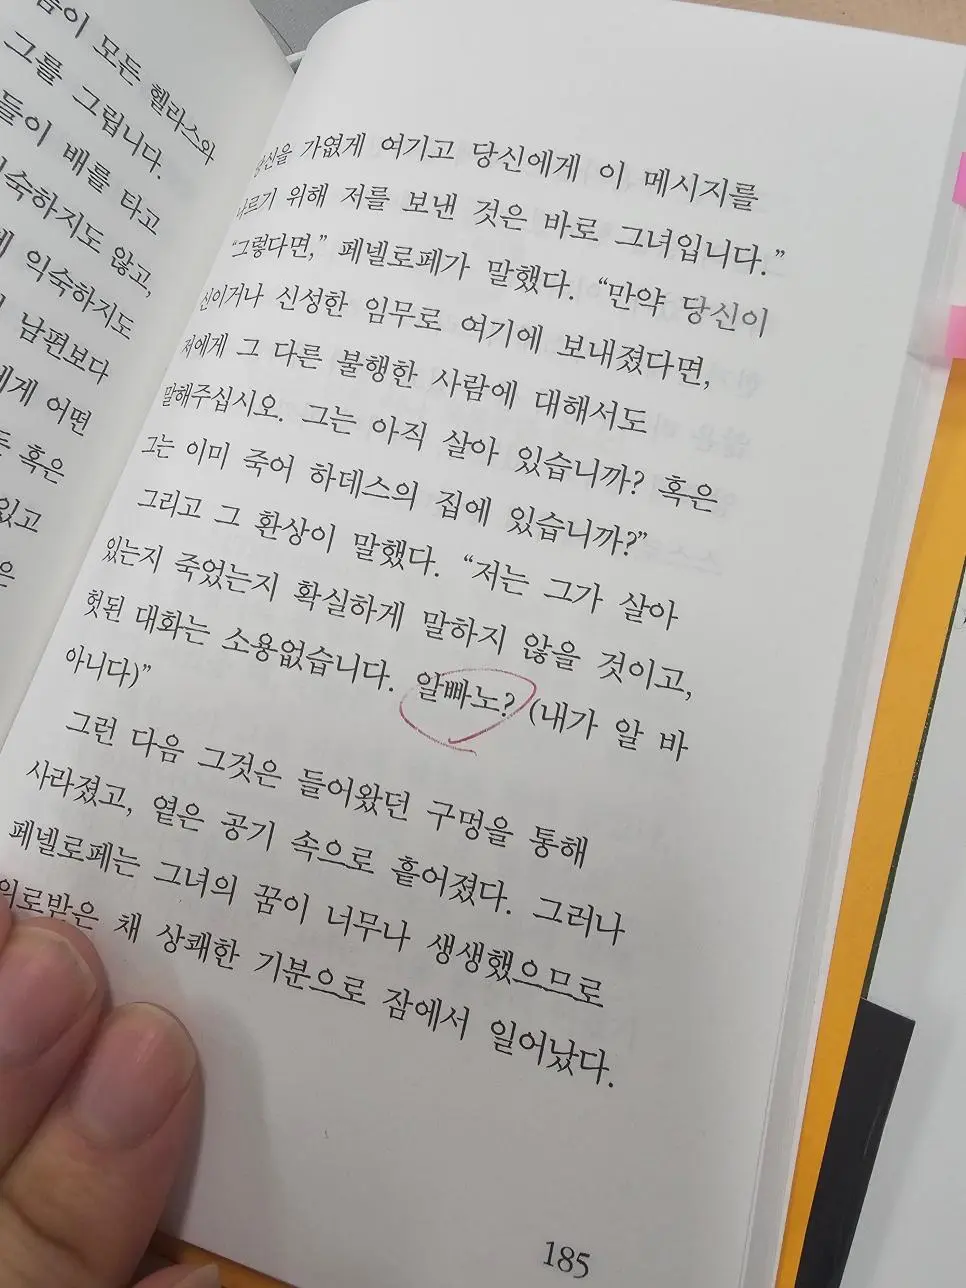 음이 모든 헬라스와
그를 그립니다.
들이 배를 타고
익숙하지도 않고,
익숙하지도
남편보다
에게 어떤
혹은
있고
은
당신을 가엾게 여기고 당신에게 이 메시지를
나르기 위해 저를 보낸 것은 바로 그녀입니다.”
“그렇다면,” 페넬로페가 말했다. “만약 당신이
신이거나 신성한 임무로 여기에 보내졌다면,
저에게 그 다른 불행한 사람에 대해서도
말해주십시오. 그는 아직 살아 있습니까? 혹은
그는 이미 죽어 하데스의 집에 있습니까?”
그리고 그 환상이 말했다. “저는 그가 살아
있는지 죽었는지 확실하게 말하지 않을 것이고,
헛된 대화는 소용없습니다. 알빠노? (내가 알 바
아니다)”
그런 다음 그것은 들어왔던 구멍을 통해
사라졌고, 옅은 공기 속으로 흩어졌다. 그러나
페넬로페는 그녀의 꿈이 너무나 생생했으므로
위로받은 채 상쾌한 기분으로 잠에서 일어났다.
185